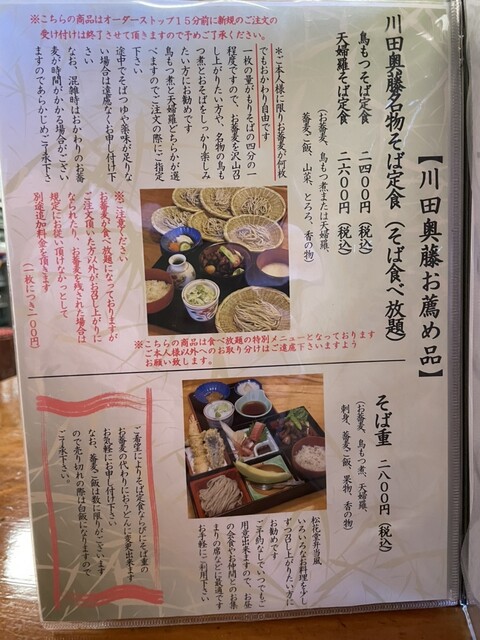 【川田奥藤お薦め品】
川田奥藤名物そば定食(そば食べ放題)
鳥もつそば定食 二四〇〇円(税込)
天婦羅そば定食 二六〇〇円(税込)
(お蕎麦、鳥もつ煮または天婦羅、
蕎麦ご飯、山菜、とろろ、香の物)
*ご本人様に限りお蕎麦が何枚
でもおかわり自由です
一枚の量がもりそばの四分の一
程度ですので、お蕎麦を沢山召
し上がりたい方や、名物の鳥も
つ煮とおそばをしっかり楽しみ
たい方にお勧めです
鳥もつ煮と天婦羅どちらかが選
べますのでご注文の際にご指定
下さい
途中でそばつゆや薬味が足りな
い場合は遠慮なくお申し付け下
さい
なお、混雑時はおかわりのお蕎
麦が時間がかかる場合がござい
ますのであらかじめご了承下さ
※こちらの商品はオーダーストップ15分前に新規のご注文の
受け付けは終了させて頂きますので予めご了承ください。
※ご注意ください
お蕎麦が食べ放題になっておりますが
ご注文頂いた方以外がお召し上がりに
なられたり、お蕎麦を残された場合は
規定にお使い頂けなかったとして
別途追加料金と頂きます
(一枚につき二〇〇円)
※こちらの商品は食べ放題の特別メニューとなっております
ご本人様以外へのお取り分けはご遠慮下さいますよう
お願い致します。
そば重 二八〇〇円(税込)
(お蕎麦、鳥もつ煮、天婦羅、
刺身、蕎麦ご飯、果物、香の物)
松花堂弁当風
いろいろなお料理を少し
ずつ召し上がりたい方に
お勧めです
ご予約なしでいつでもご
用意出来ますので、お昼
の会食やお仲間とのお集
まりの席などに最適です
お手軽にご利用下さい
ご希望によりそば定食ならびにそば重の
お蕎麦の代わりにおうどんに変更出来ます
お気軽にお申し付け下さい
なお、蕎麦ご飯は数に限りがございます
ので売り切れの際は白飯になりますので
ご了承下さい。